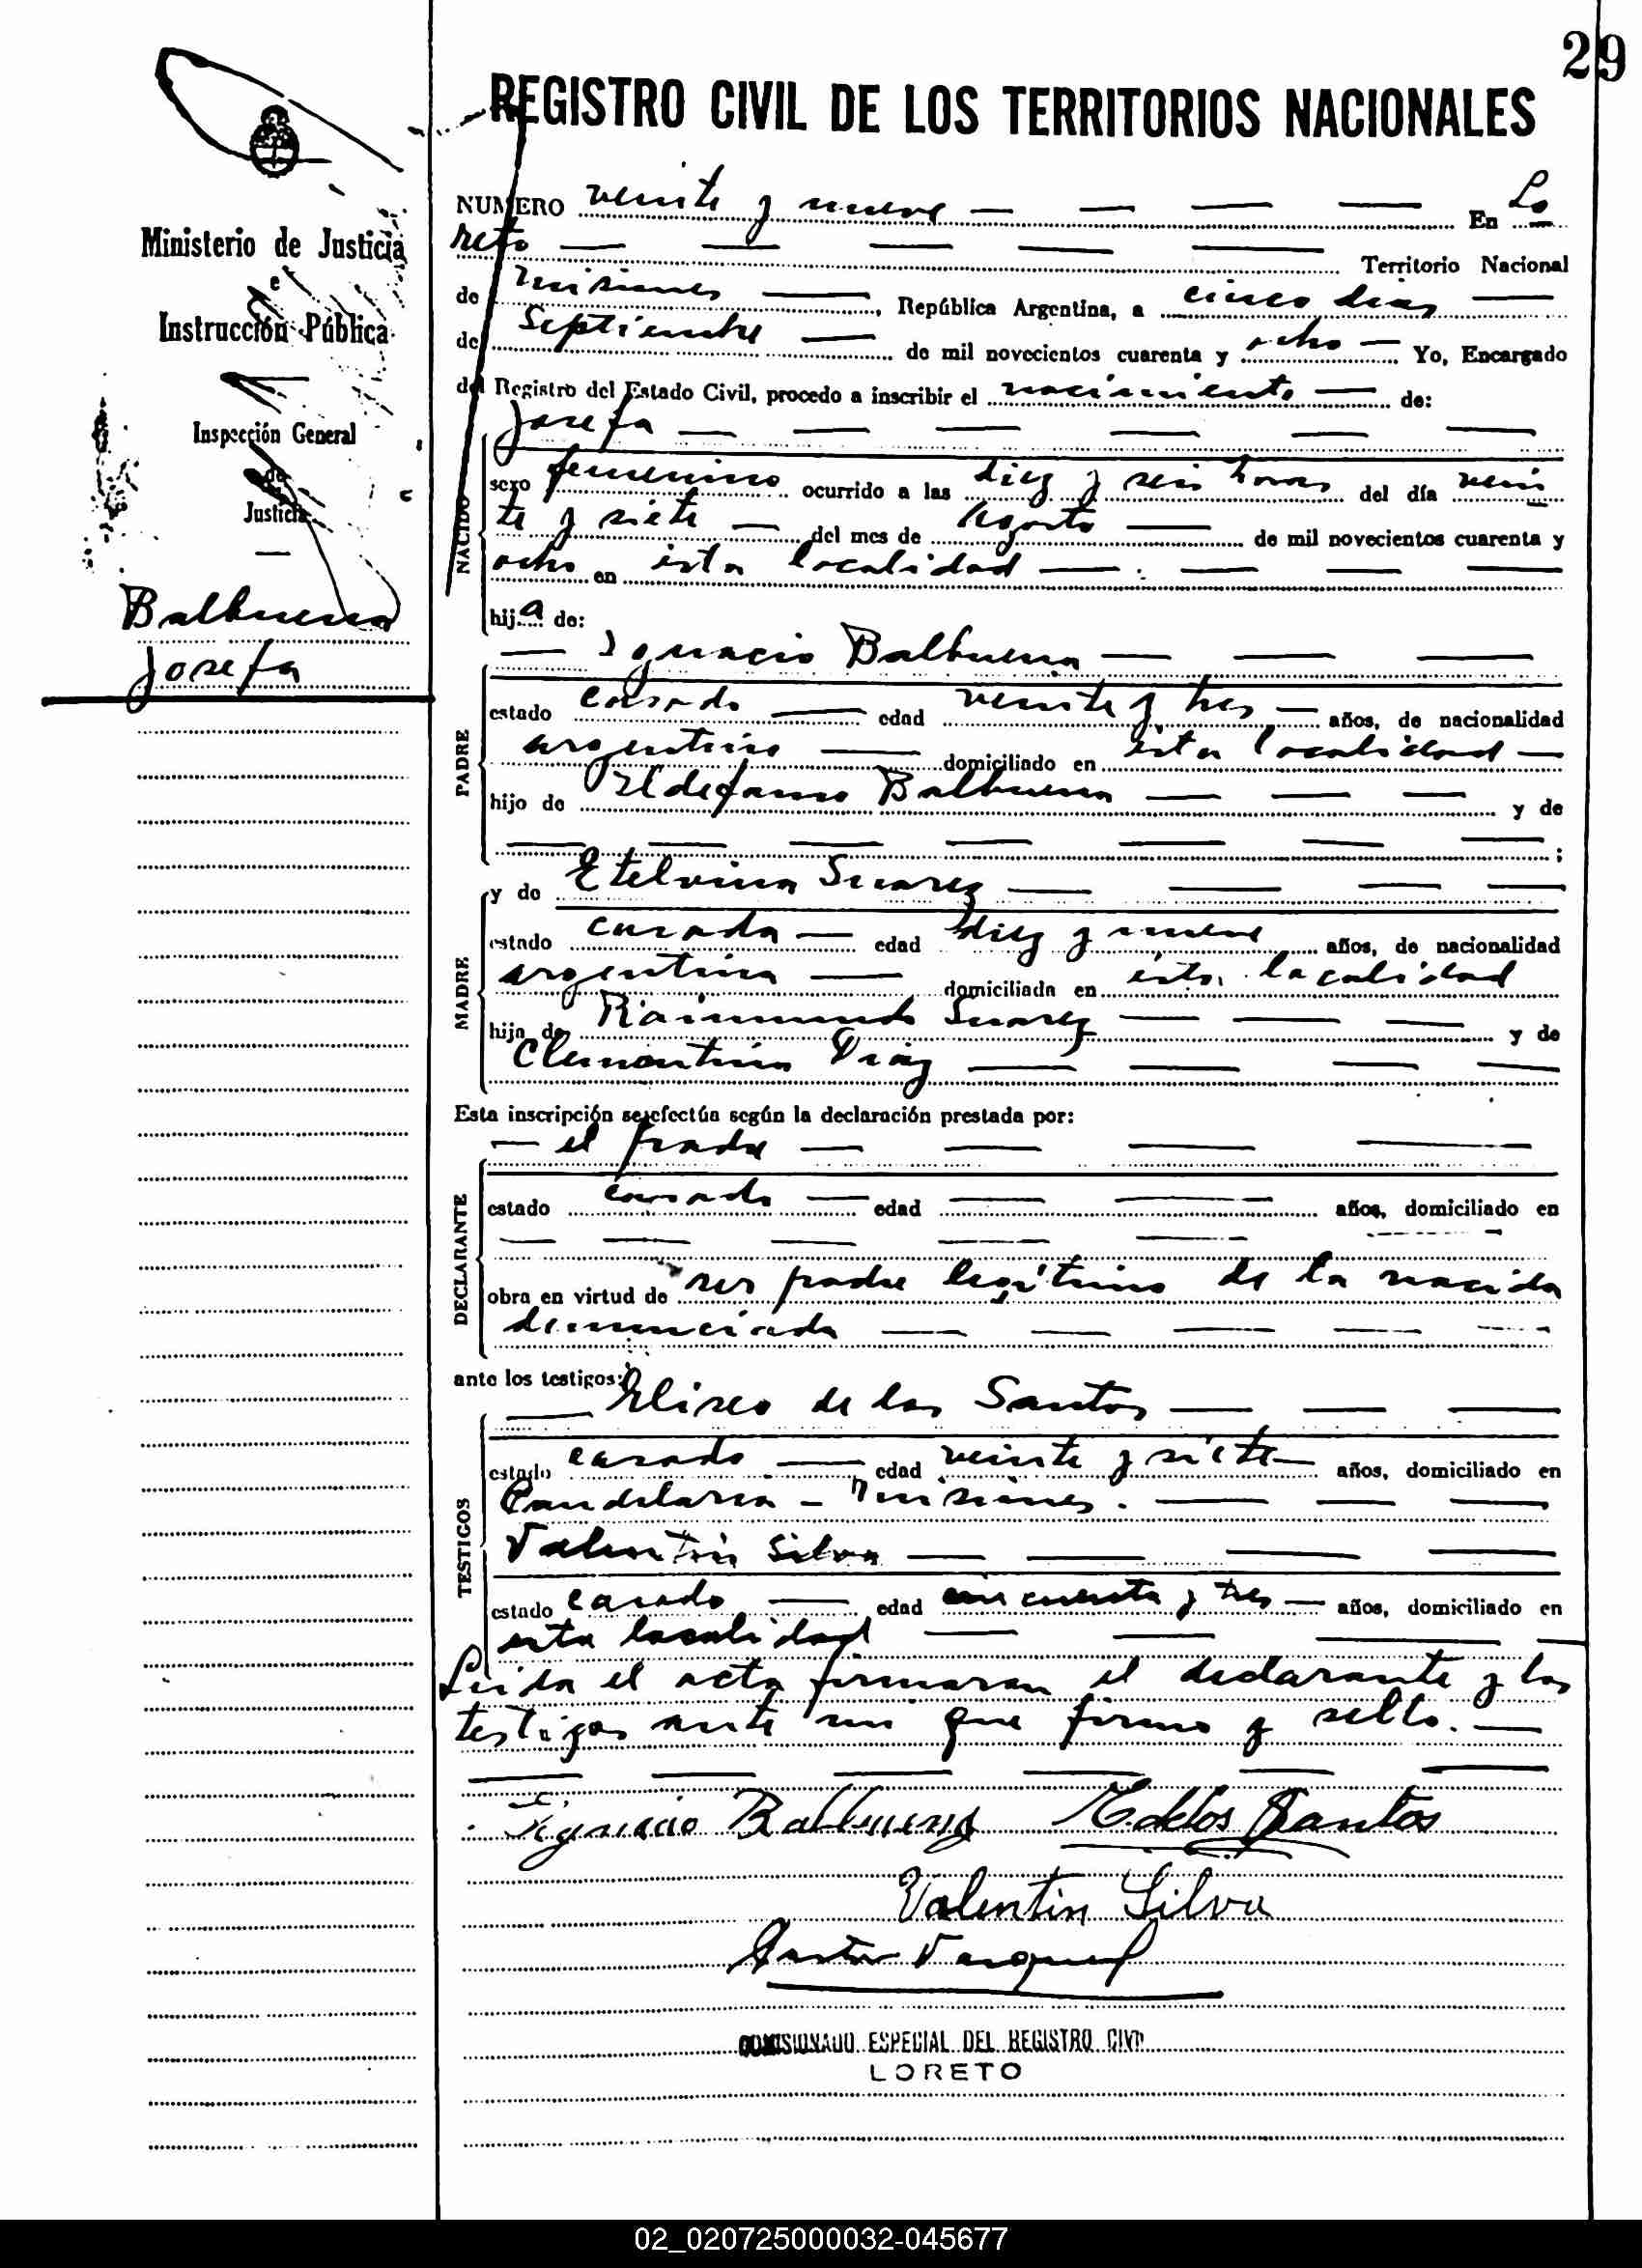 29
REGISTRO CIVIL DE LOS TERRITORIOS NACIONALES
Ministerio de Justicia
e
Instrucción Pública
Inspección General
de
Justicia
Balbuena
Josefa
NUMERO veinte y nueve — — — — En Lo
reto — — — — — Territorio Nacional
de Misiones —, República Argentina, a cinco dias —
de Septiembre — de mil novecientos cuarenta y ocho — Yo, Encargado
del Registro del Estado Civil, procedo a inscribir el nacimiento — de:
Josefa — — — — — —
NACIDO
sexo femenino ocurrido a las diez y seis horas del día vein
te y siete — del mes de Agosto — de mil novecientos cuarenta y
ocho en esta localidad — . — — —
hija de:
— Ignacio Balbuena — — —
PADRE
estado casado — edad veinte y tres — años, de nacionalidad
argentino — domiciliado en esta localidad —
hijo de Ildefonso Balbuena — — — y de
— — — — — — — ;
y de Etelvina Suarez — — — —
MADRE
estado casada — edad diez y nueve años, de nacionalidad
argentina — domiciliada en esta localidad
hija de Raimundo Suarez — — — y de
Clementina Diaz — — — —
Esta inscripción se efectúa según la declaración prestada por:
— el padre — — — —
DECLARANTE
estado casado — edad — — años, domiciliado en
— — — — — —
obra en virtud de ser padre legítimo de la nacida
denunciada — — — — —
ante los testigos:
— Eliseo de los Santos — — —
TESTIGOS
estado casado — edad veinte y siete — años, domiciliado en
Candelaria - Misiones. — — —
Valentin Silva — — — —
estado casado — edad cincuenta y tres — años, domiciliado en
esta localidad — — — —
Leida el acta firmaran el declarante y los
testigos ante mi que firmo y sello. —
— — — — — —
Ignacio Balbuena E. de los Santos
Valentin Silva
COMISIONADO ESPECIAL DEL REGISTRO CIVIL
LORETO
02_020725000032-045677